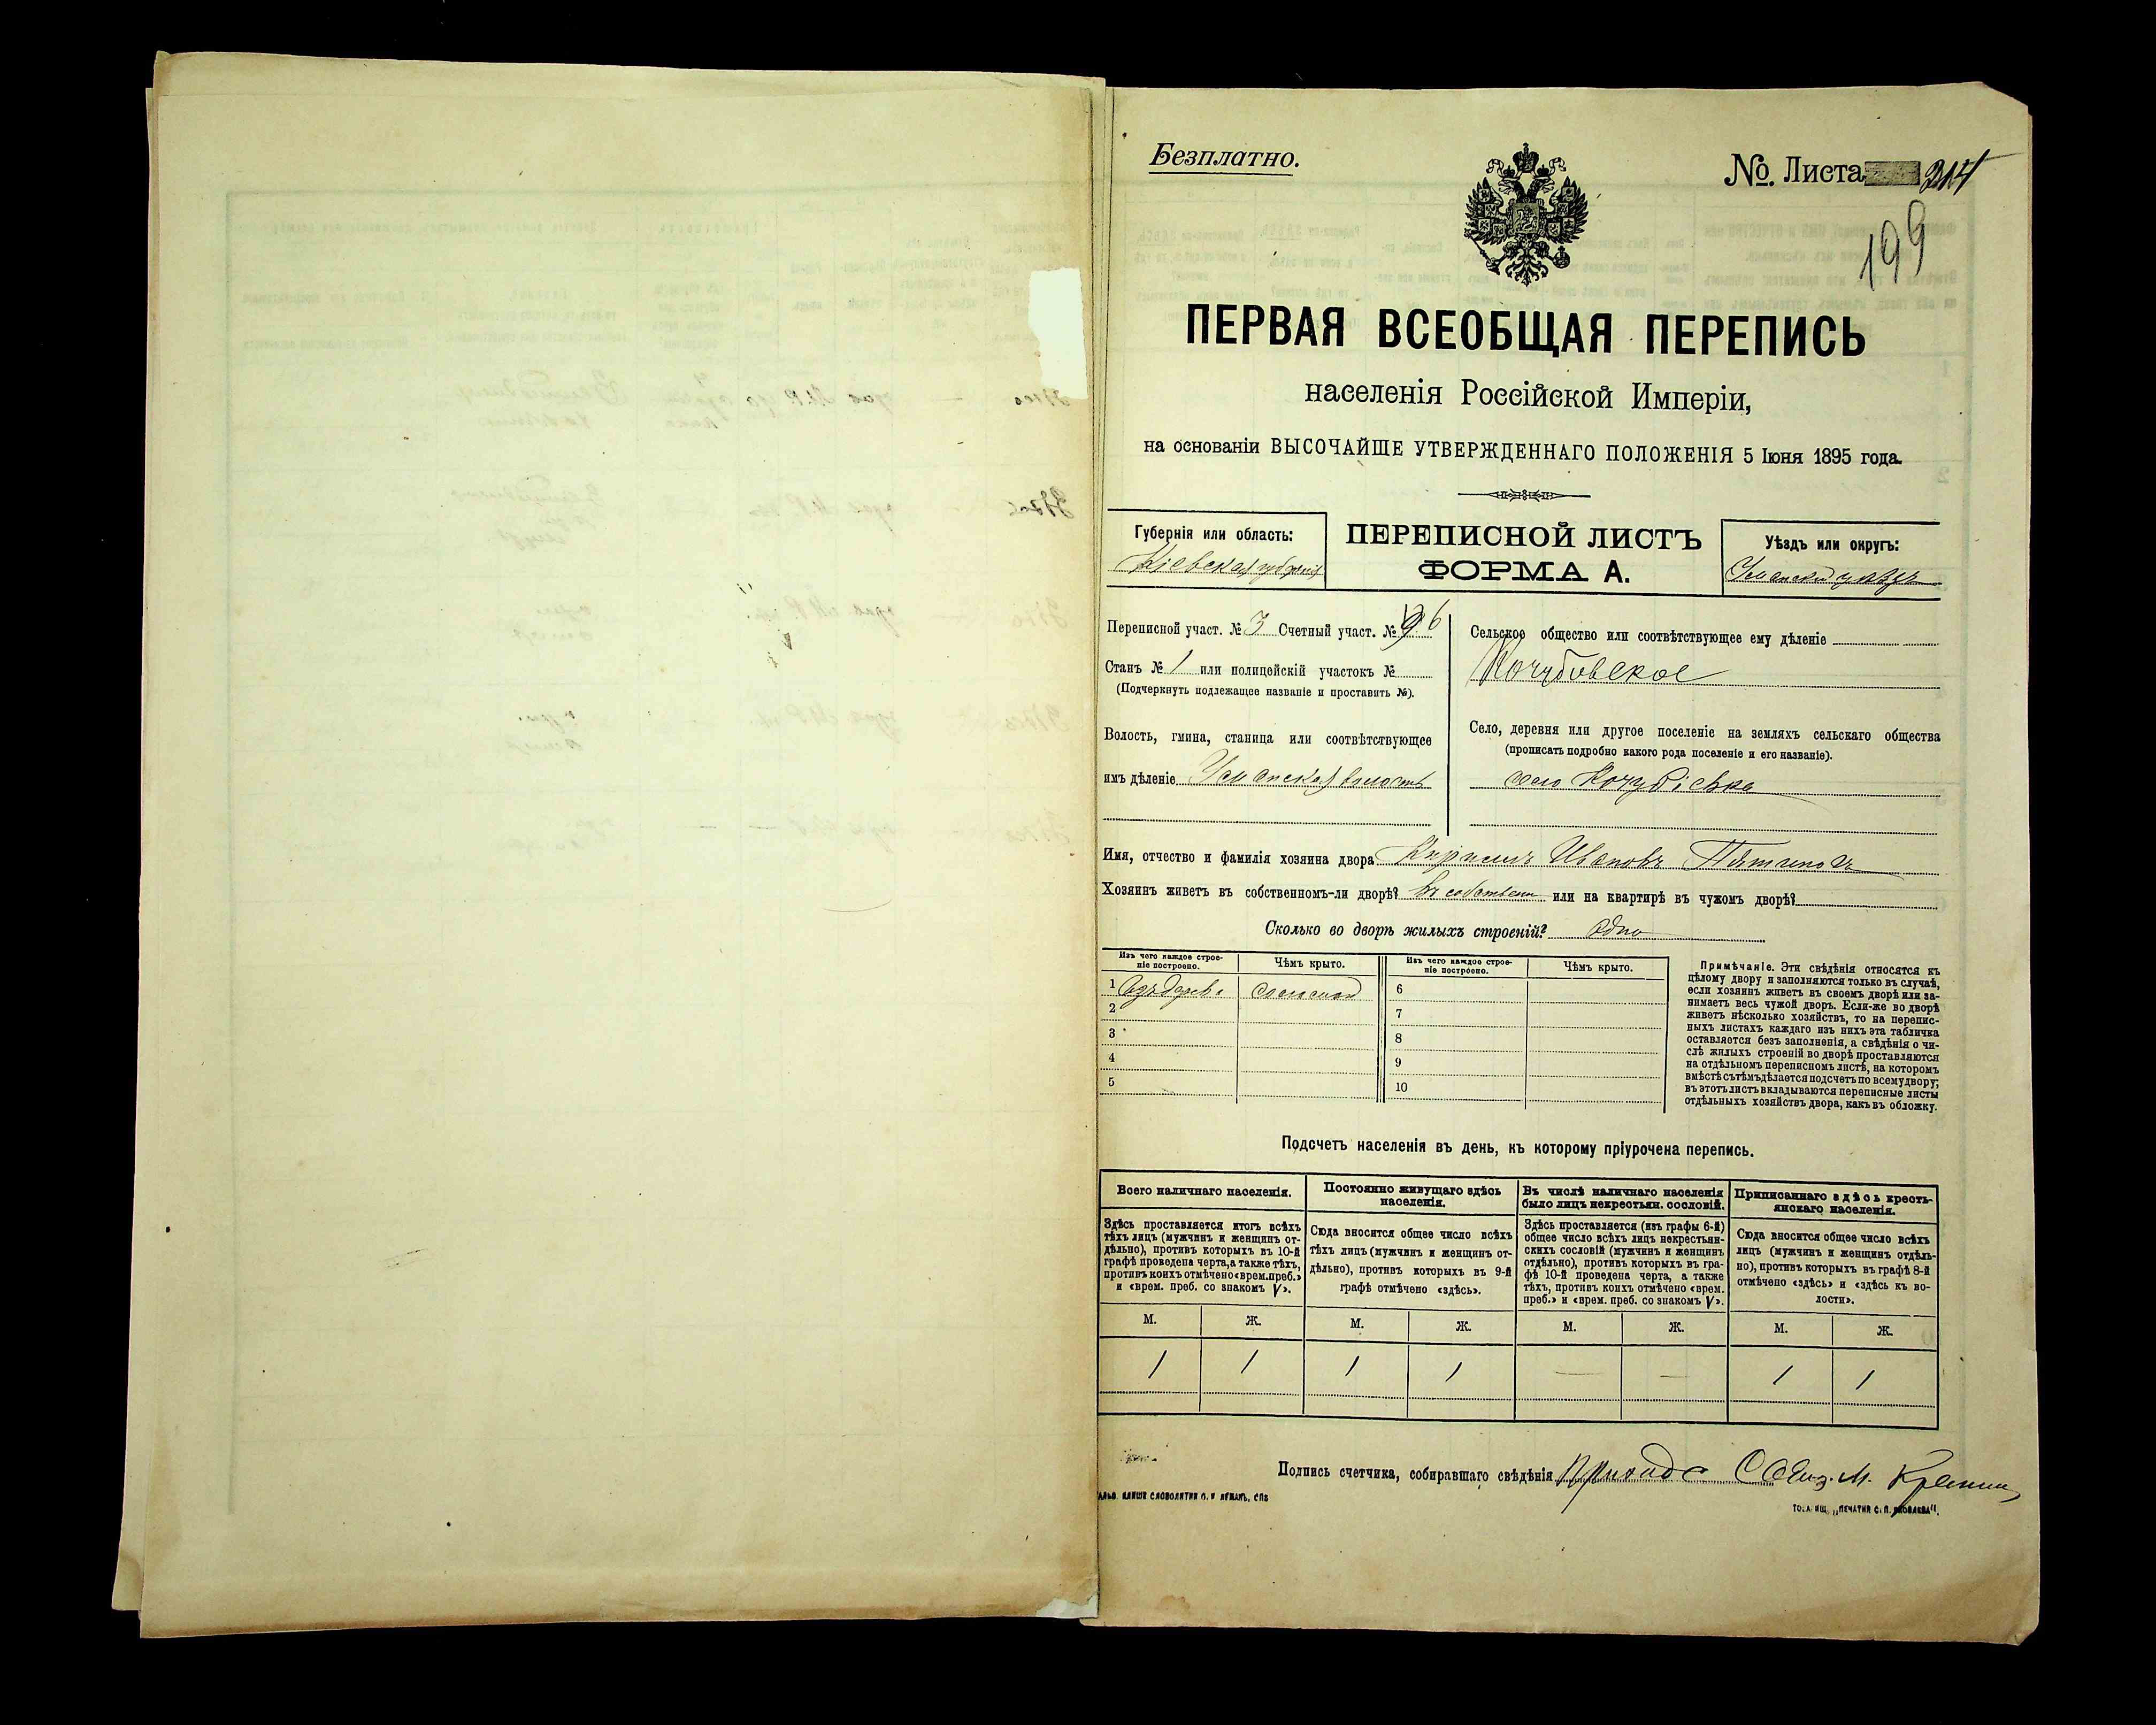 Безплатно.
№. Листа 214
199
ПЕРВАЯ ВСЕОБЩАЯ ПЕРЕПИСЬ
населенія Россійской Имперіи,
на основаніи ВЫСОЧАЙШЕ УТВЕРЖДЕННАГО ПОЛОЖЕНІЯ 5 Іюня 1895 года.
Губернія или область:
Кіевская губернія
ПЕРЕПИСНОЙ ЛИСТЪ
ФОРМА А.
Уѣздъ или округъ:
Уманскій уѣздъ
Переписной участ. № 3 Счетный участ. № 6
Станъ № 1 или полицейскій участокъ №
(Подчеркнуть подлежащее названіе и проставить №).
Волость, гмина, станица или соотвѣтствующее
имъ дѣленіе Уманская волость
Сельское общество или соотвѣтствующее ему дѣленіе
Кочубовское
Село, деревня или другое поселеніе на земляхъ сельскаго общества
(прописать подробно какого рода поселеніе и его названіе).
село Кочубіевка
Имя, отчество и фамилія хозяина двора Кирилъ Ивановъ
Хозяинъ живетъ въ собственномъ-ли дворѣ? Въ собствен или на квартирѣ въ чужомъ дворѣ?
Сколько во дворѣ жилыхъ строеній? Одно
Изъ чего каждое строе-
ніе построено.
Чѣмъ крыто.
Изъ чего каждое строе-
ніе построено.
Чѣмъ крыто.
1 Изъ дерева соломой
2
3
4
5
6
7
8
9
10
Примѣчаніе. Эти свѣдѣнія относятся къ
цѣлому двору и заполняются только въ случаѣ,
если хозяинъ живетъ въ своемъ дворѣ или за-
нимаетъ весь чужой дворъ. Если-же во дворѣ
живетъ нѣсколько хозяйствъ, то на перепис-
ныхъ листахъ каждаго изъ нихъ эта табличка
оставляется безъ заполненія, а свѣдѣнія о чи-
слѣ жилыхъ строеній во дворѣ проставляются
на отдѣльномъ переписномъ листѣ, на которомъ
вмѣстѣ съ тѣмъ дѣлается подсчетъ по всему двору;
въ этотъ листъ вкладываются переписные листы
отдѣльныхъ хозяйствъ двора, какъ въ обложку.
Подсчетъ населенія въ день, къ которому пріурочена перепись.
Всего наличнаго населенія.
Здѣсь проставляется итогъ всѣхъ
тѣхъ лицъ (мужчинъ и женщинъ от-
дѣльно), противъ которыхъ въ 10-й
графѣ проведена черта, а также тѣхъ,
противъ коихъ отмѣчено «врем. преб.»
и «врем. преб. со знакомъ V».
Постоянно живущаго здѣсь
населенія.
Сюда вносится общее число всѣхъ
тѣхъ лицъ (мужчинъ и женщинъ от-
дѣльно), противъ которыхъ въ 9-й
графѣ отмѣчено «здѣсь».
Въ числѣ наличнаго населенія
было лицъ некрестьян. сословій.
Здѣсь проставляется (изъ графы 6-й)
общее число всѣхъ лицъ некрестьян-
скихъ сословій (мужчинъ и женщинъ
отдѣльно), противъ которыхъ въ гра-
фѣ 10-й проведена черта, а также
тѣхъ, противъ коихъ отмѣчено «врем.
преб.» и «врем. преб. со знакомъ V».
Приписаннаго здѣсь кресть-
янскаго населенія.
Сюда вносится общее число всѣхъ
лицъ (мужчинъ и женщинъ отдѣль-
но), противъ которыхъ въ графѣ 8-й
отмѣчено «здѣсь» и «здѣсь къ во-
лости».
М. Ж. М. Ж. М. Ж. М. Ж.
1 1 1 1 — — 1 1
Подпись счетчика, собиравшаго свѣдѣнія